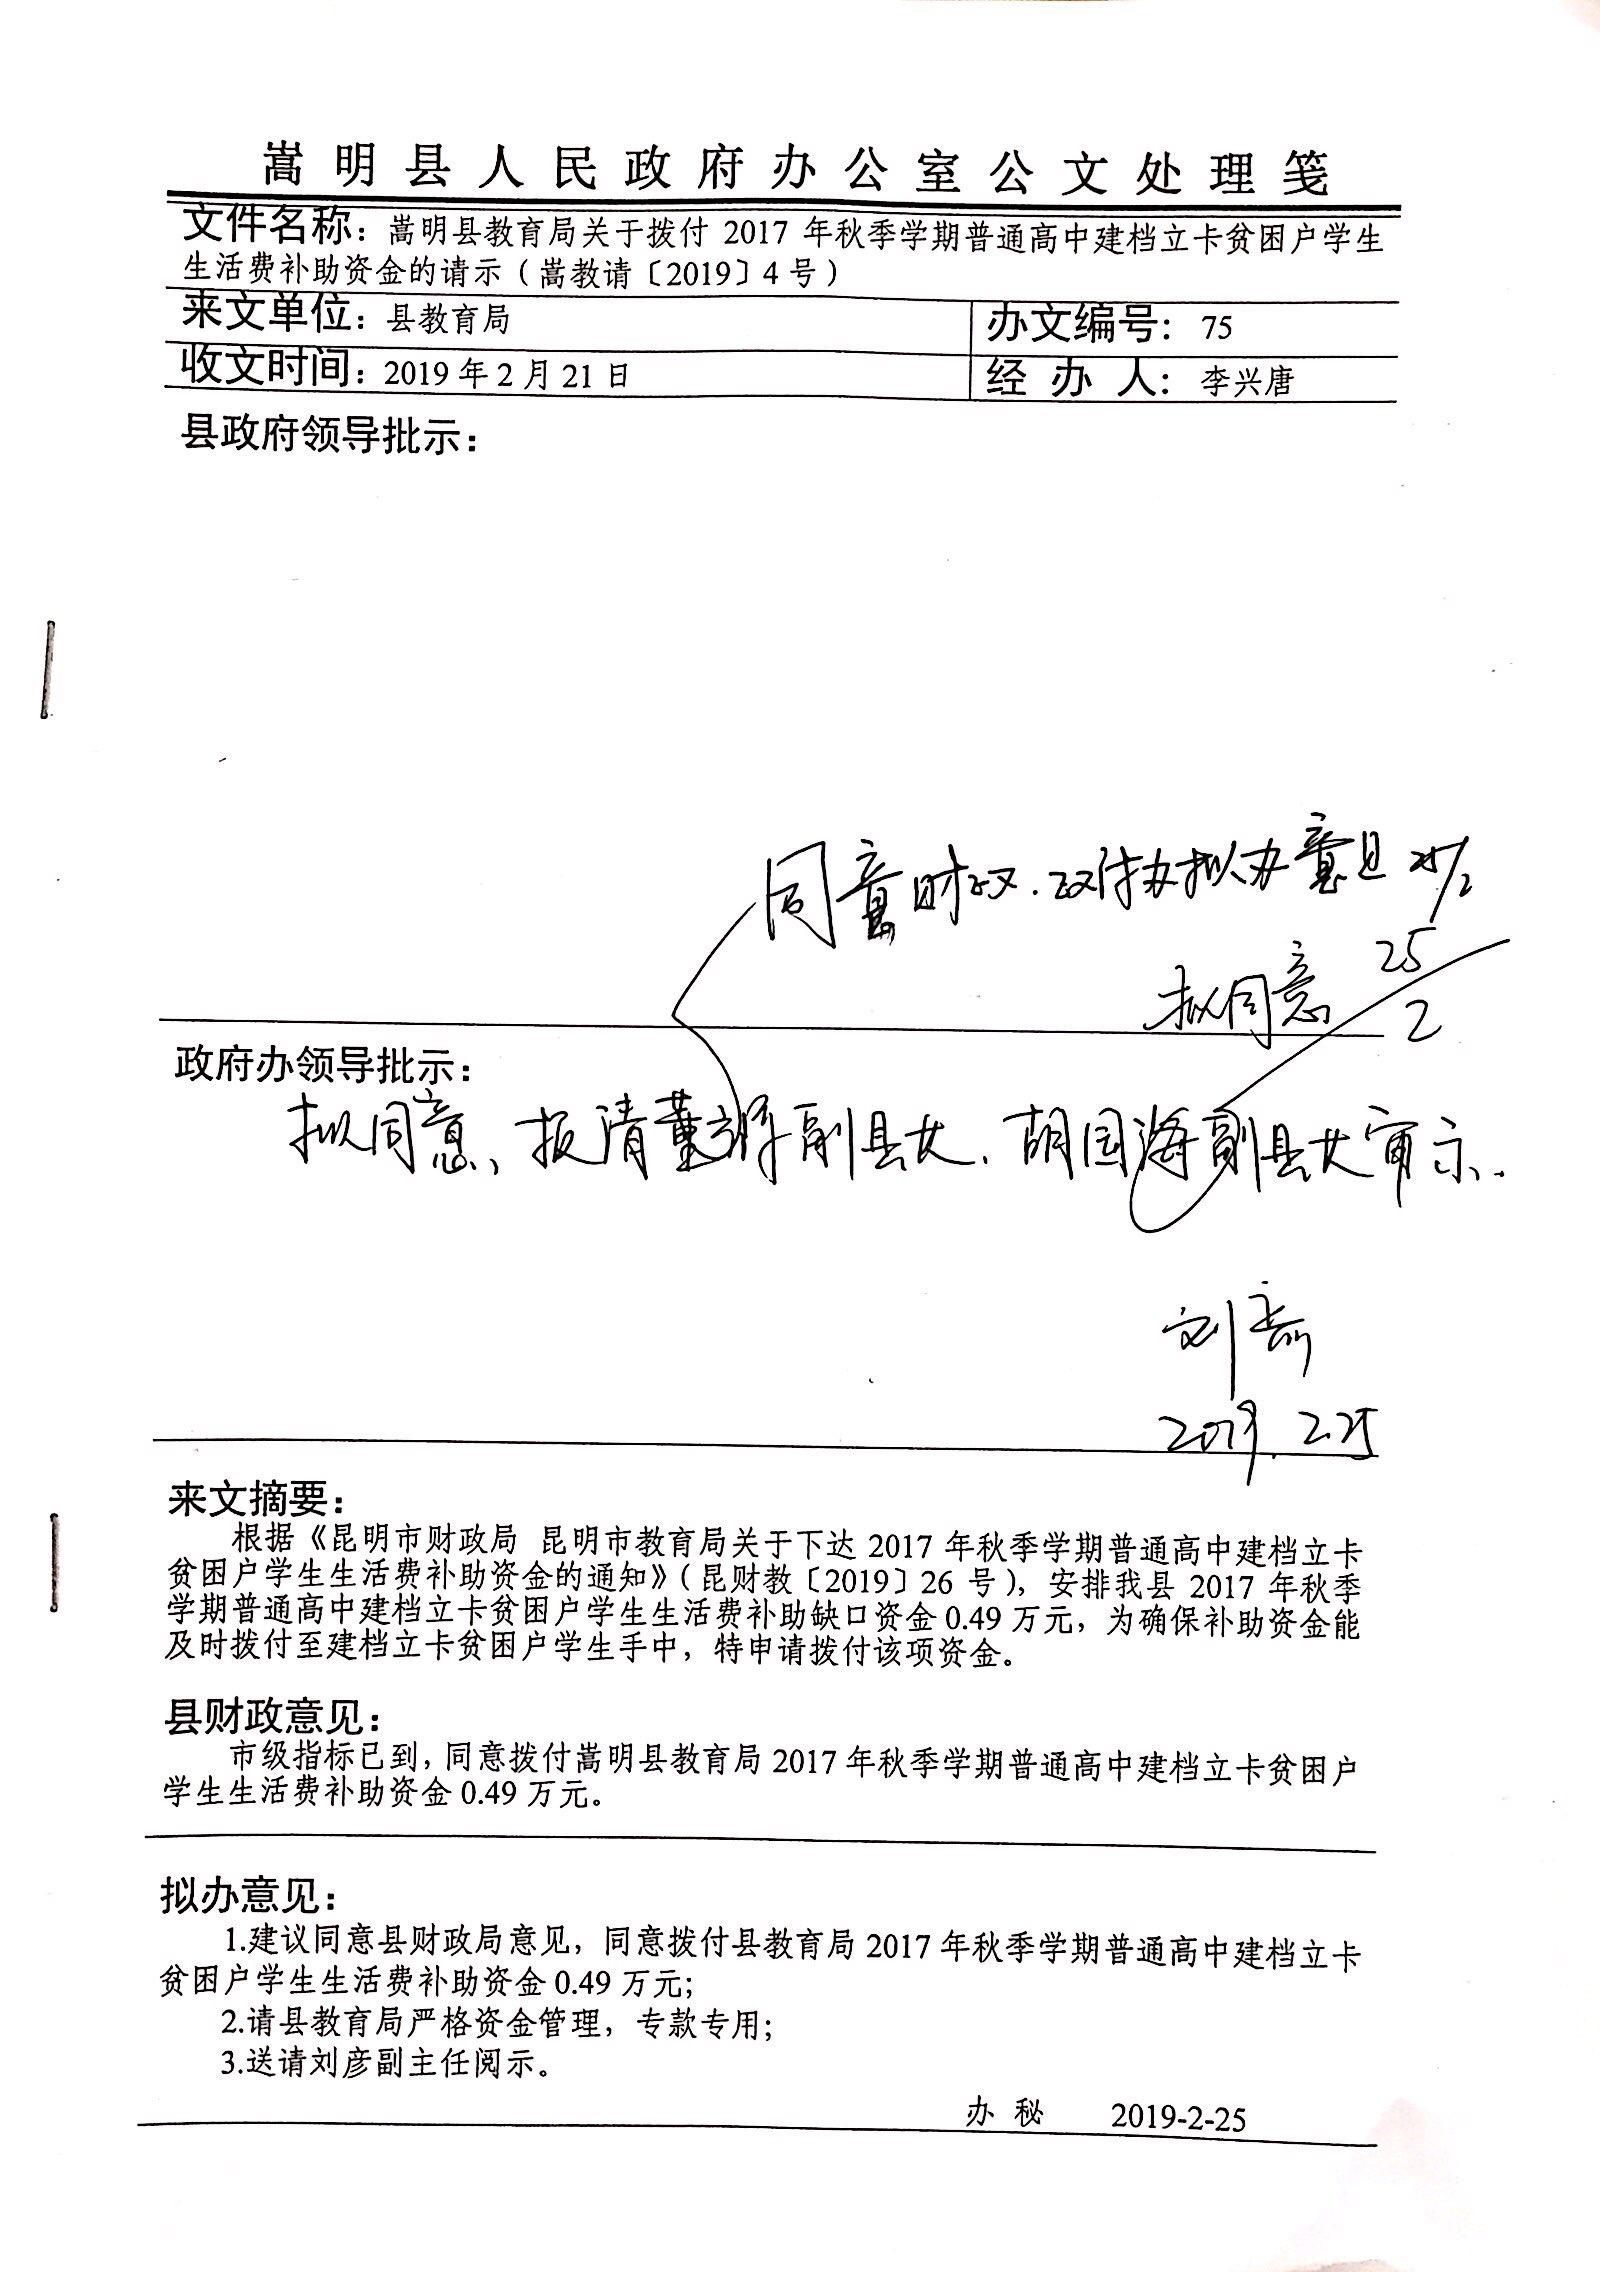 嵩明县人民政府办公室公文处理笺
文件名称：嵩明县教育局关于拨付 2017 年秋季学期普通高中建档立卡贫困户学生
生活费补助资金的请示（嵩教请〔2019〕4 号）
来文单位：县教育局
办文编号：75
收文时间：2019 年 2 月 21 日
经 办 人：李兴唐
县政府领导批示：
同意财政、政府办拟办意见 25/2
拟同意 25/2
政府办领导批示：
拟同意、报请董副县长、胡国海副县长审示.
刘彦
2019.2.25
来文摘要：
根据《昆明市财政局 昆明市教育局关于下达 2017 年秋季学期普通高中建档立卡
贫困户学生生活费补助资金的通知》（昆财教〔2019〕26 号），安排我县 2017 年秋季
学期普通高中建档立卡贫困户学生生活费补助缺口资金 0.49 万元，为确保补助资金能
及时拨付至建档立卡贫困户学生手中，特申请拨付该项资金。
县财政意见：
市级指标已到，同意拨付嵩明县教育局 2017 年秋季学期普通高中建档立卡贫困户
学生生活费补助资金 0.49 万元。
拟办意见：
1.建议同意县财政局意见，同意拨付县教育局 2017 年秋季学期普通高中建档立卡
贫困户学生生活费补助资金 0.49 万元；
2.请县教育局严格资金管理，专款专用；
3.送请刘彦副主任阅示。
办 秘 2019-2-25